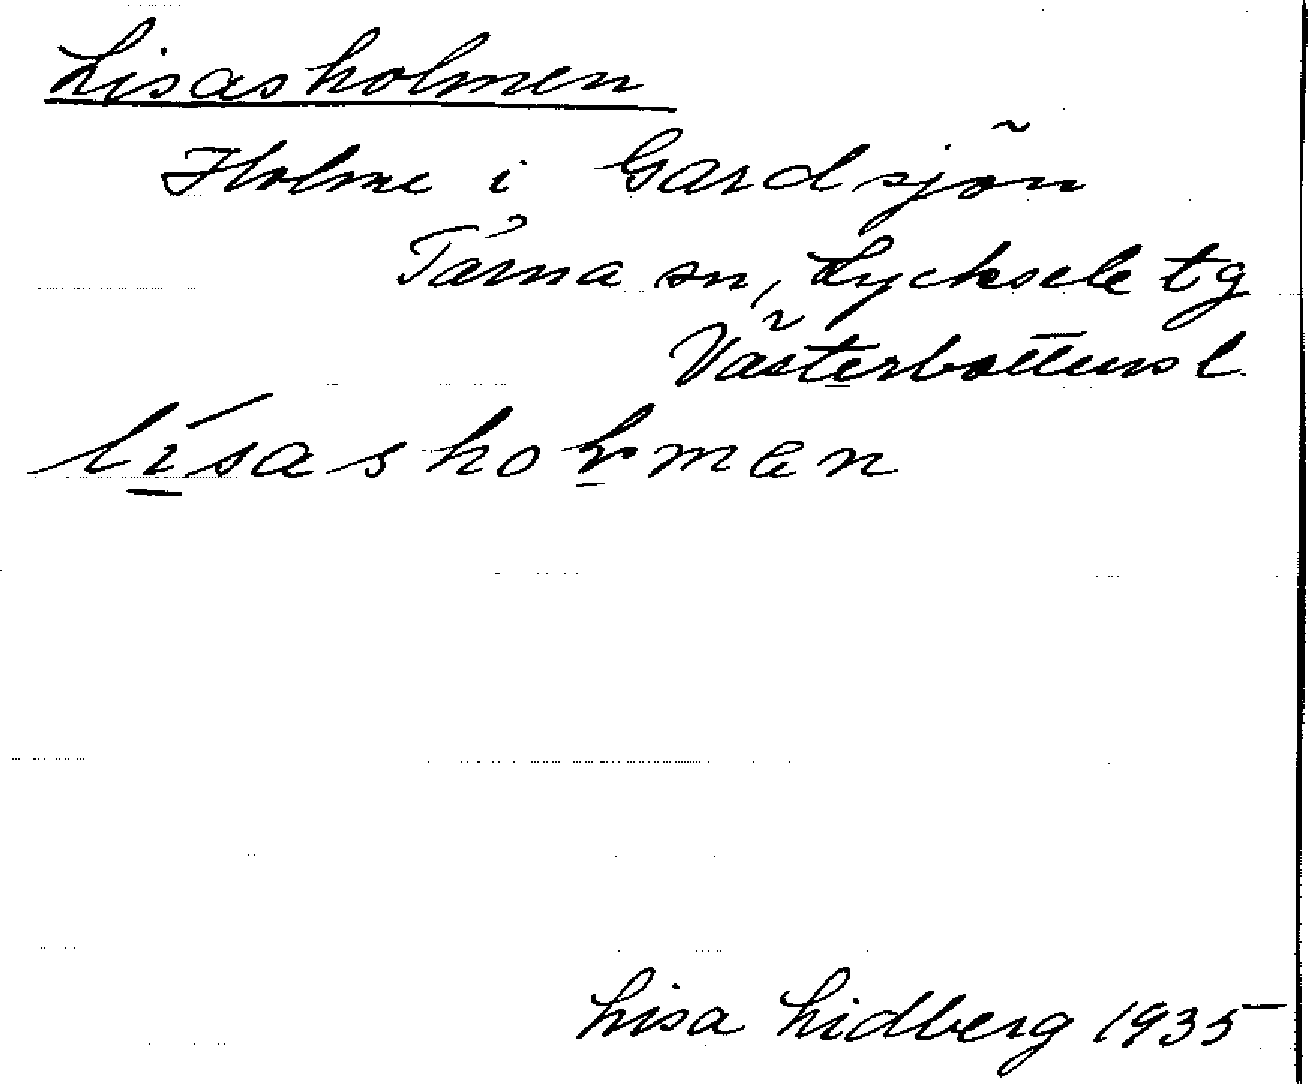 Lisasholmen
Holme i Gardsjön
Tärna sn, Lycksele tg
Västerbottens l.
lísasholmen
Lisa Lidberg 1935